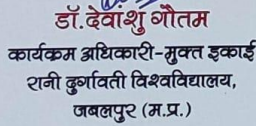 डॉ.देवांशु गौतम
कार्यकम अधिकारी-मुक्त इकाई
रानी दुर्गावती विश्वविद्यालय,
जबलपुर (म.प्र.)